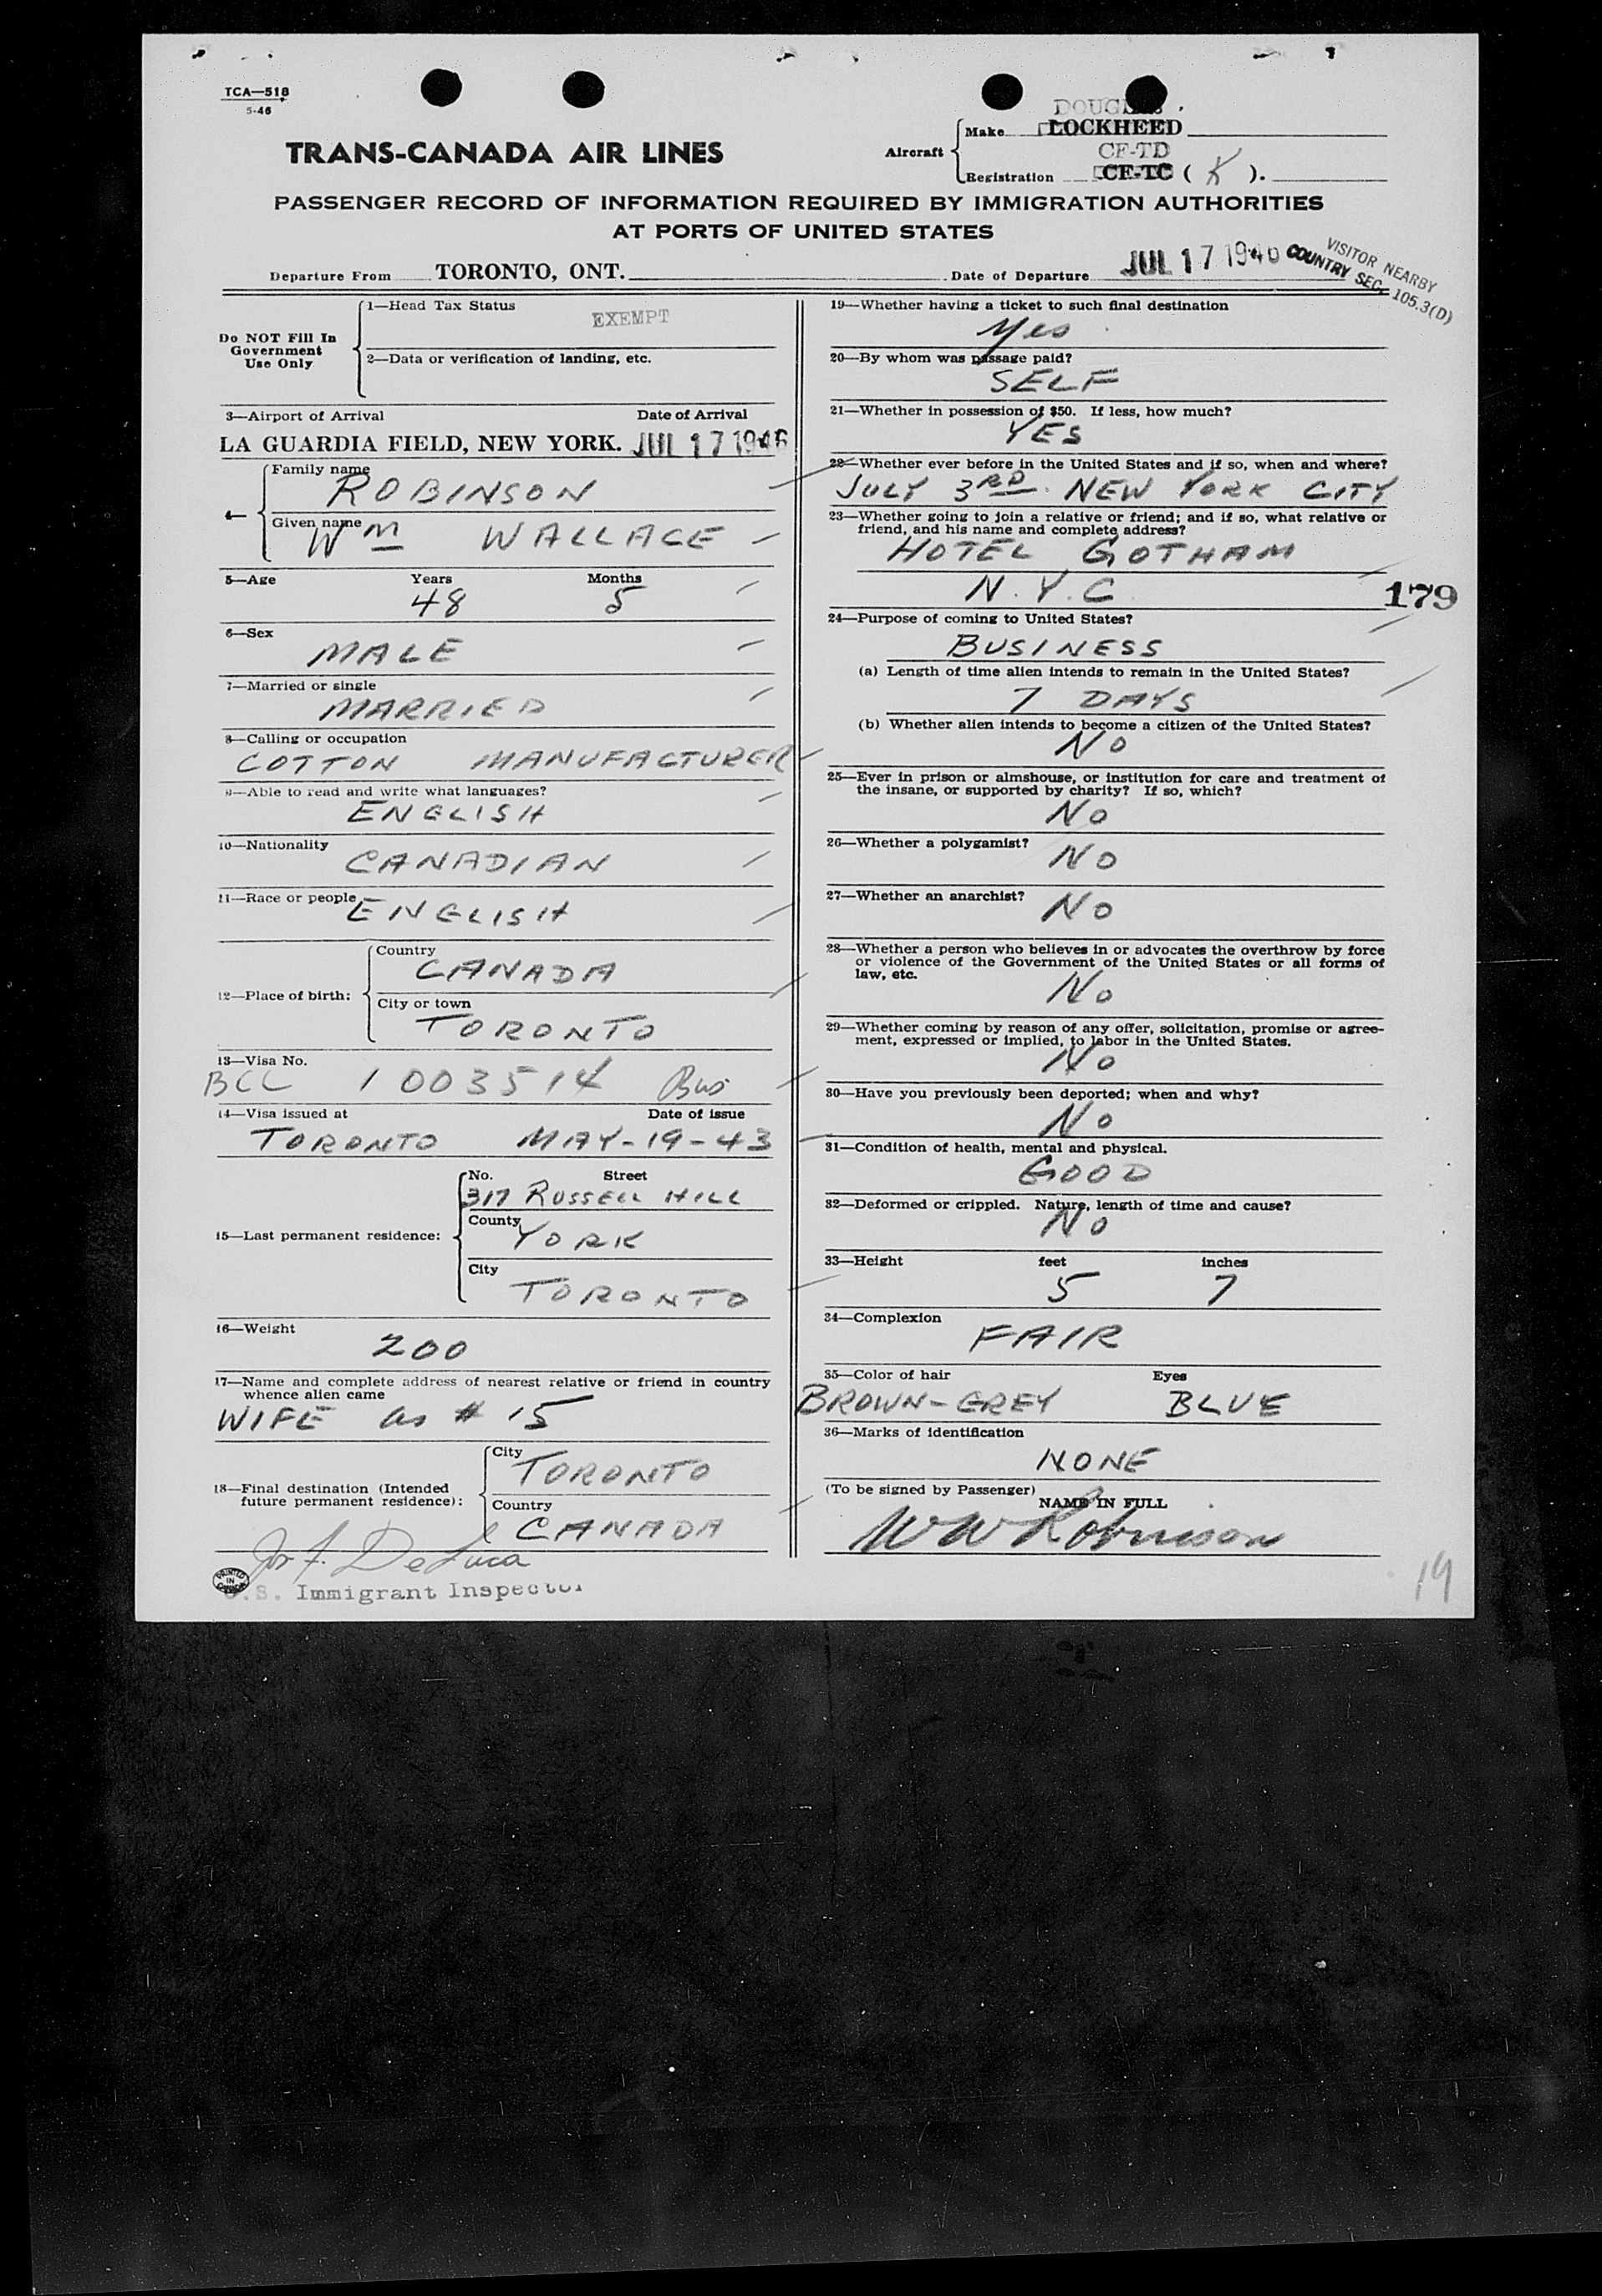 TCA—518
5-46
DOUGLAS
Make LOCKHEED
TRANS-CANADA AIR LINES
Aircraft
CF-TD
Registration CF-TC ( K ).
PASSENGER RECORD OF INFORMATION REQUIRED BY IMMIGRATION AUTHORITIES
AT PORTS OF UNITED STATES
Departure From TORONTO, ONT. Date of Departure JUL 17 1946
VISITOR NEARBY
COUNTRY SEC. 105.3(D)
Do NOT Fill In
Government
Use Only
1—Head Tax Status
EXEMPT
2—Data or verification of landing, etc.
3—Airport of Arrival Date of Arrival
LA GUARDIA FIELD, NEW YORK. JUL 17 1946
4—
Family name
ROBINSON
Given name
Wm WALLACE
5—Age Years Months
48 5
6—Sex
MALE
7—Married or single
MARRIED
8—Calling or occupation
COTTON MANUFACTURER
9—Able to read and write what languages?
ENGLISH
10—Nationality
CANADIAN
11—Race or people
ENGLISH
12—Place of birth:
Country
CANADA
City or town
TORONTO
13—Visa No.
BCC 1003514 Bus
14—Visa issued at Date of issue
TORONTO MAY-19-43
15—Last permanent residence:
No. Street
317 RUSSELL HILL
County
YORK
City
TORONTO
16—Weight
200
17—Name and complete address of nearest relative or friend in country
whence alien came
WIFE as # 15
18—Final destination (Intended
future permanent residence):
City
TORONTO
Country
CANADA
Jos A. DeLuca
U.S. Immigrant Inspector
PRINTED
IN
CANADA
19—Whether having a ticket to such final destination
Yes
20—By whom was passage paid?
SELF
21—Whether in possession of $50. If less, how much?
YES
22—Whether ever before in the United States and if so, when and where?
JULY 3RD. NEW YORK CITY
23—Whether going to join a relative or friend; and if so, what relative or
friend, and his name and complete address?
HOTEL GOTHAM
N.Y.C.
179
24—Purpose of coming to United States?
BUSINESS
(a) Length of time alien intends to remain in the United States?
7 DAYS
(b) Whether alien intends to become a citizen of the United States?
NO
25—Ever in prison or almshouse, or institution for care and treatment of
the insane, or supported by charity? If so, which?
NO
26—Whether a polygamist?
NO
27—Whether an anarchist?
NO
28—Whether a person who believes in or advocates the overthrow by force
or violence of the Government of the United States or all forms of
law, etc.
NO
29—Whether coming by reason of any offer, solicitation, promise or agree-
ment, expressed or implied, to labor in the United States.
NO
30—Have you previously been deported; when and why?
NO
31—Condition of health, mental and physical.
GOOD
32—Deformed or crippled. Nature, length of time and cause?
NO
33—Height feet inches
5 7
34—Complexion
FAIR
35—Color of hair Eyes
BROWN-GREY BLUE
36—Marks of identification
NONE
(To be signed by Passenger)
NAME IN FULL
WW Robinson
19